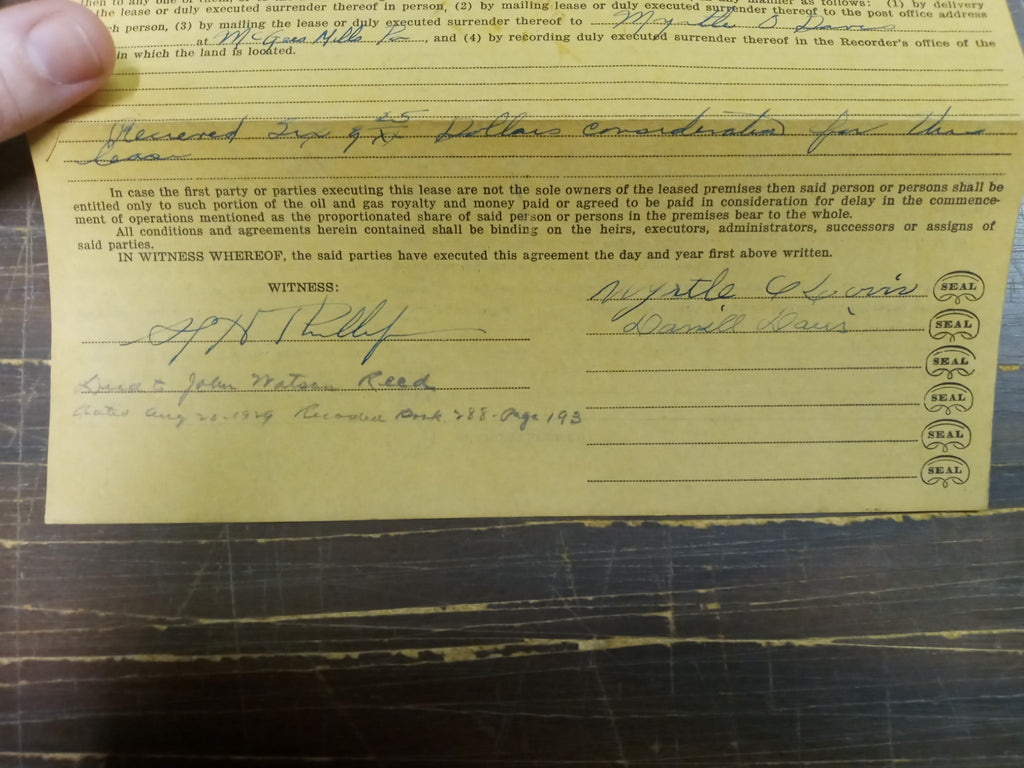 then to any one of them, manner as follows: (1) by delivery
the lease or duly executed surrender thereof in person, (2) by mailing lease or duly executed surrender thereof to the post office address
ch person, (3) by mailing the lease or duly executed surrender thereof to Myrtle O Davis
at McGees Mills Pa, and (4) by recording duly executed surrender thereof in the Recorder's office of the
in which the land is located.
Received Six & 25/xx Dollars consideration for this
lease
In case the first party or parties executing this lease are not the sole owners of the leased premises then said person or persons shall be
entitled only to such portion of the oil and gas royalty and money paid or agreed to be paid in consideration for delay in the commence-
ment of operations mentioned as the proportionated share of said person or persons in the premises bear to the whole.
All conditions and agreements herein contained shall be binding on the heirs, executors, administrators, successors or assigns of
said parties.
IN WITNESS WHEREOF, the said parties have executed this agreement the day and year first above written.
WITNESS:
Myrtle O Davis SEAL
Darrell Davis SEAL
SEAL
Deed to John Watson Reed SEAL
dated Aug 20-1929 Recorded Book 288-Page 193
SEAL
SEAL